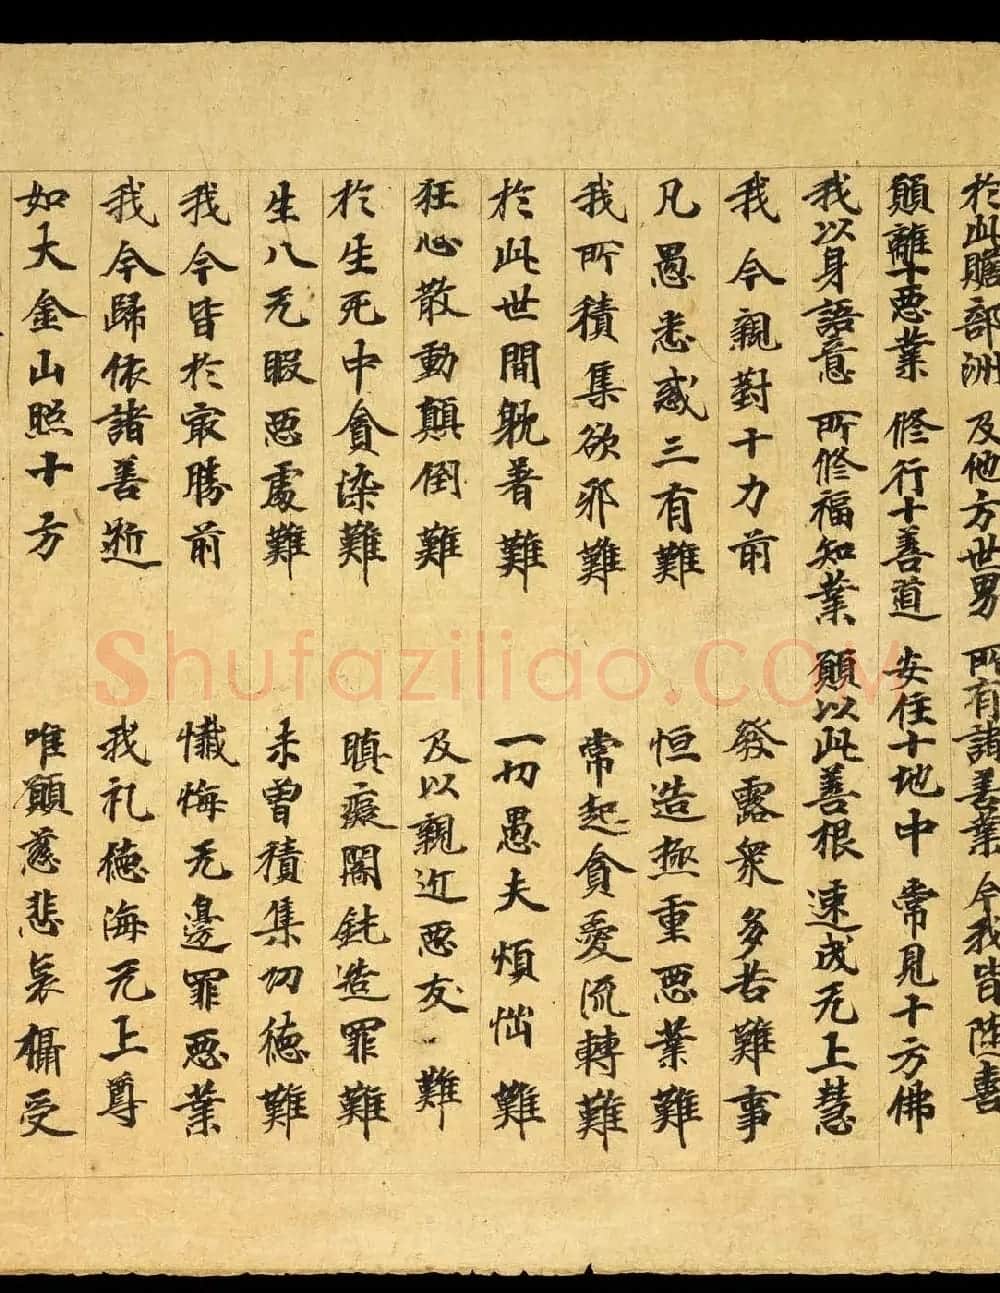 於此贍部洲 及他方世界 所有諸善業 今我皆隨喜
願離十惡業 修行十善道 安住十地中 常見十方佛
我以身語意 所修福知業 願以此善根 速成无上慧
我今親對十力前 發露衆多苦難事
凡愚迷惑三有難 恒造極重惡業難
我所積集欲邪難 常起貪愛流轉難
於此世間躭著難 一切愚夫煩惱難
狂心散動顛倒難 及以親近惡友難
於生死中貪染難 瞋癡闇鈍造罪難
生八无暇惡處難 未曾積集功德難
我今皆於最勝前 懺悔无邊罪惡業
我今歸依諸善逝 我礼德海无上尊
如大金山照十方 唯願慈悲哀攝受
Shufaziliao.COM